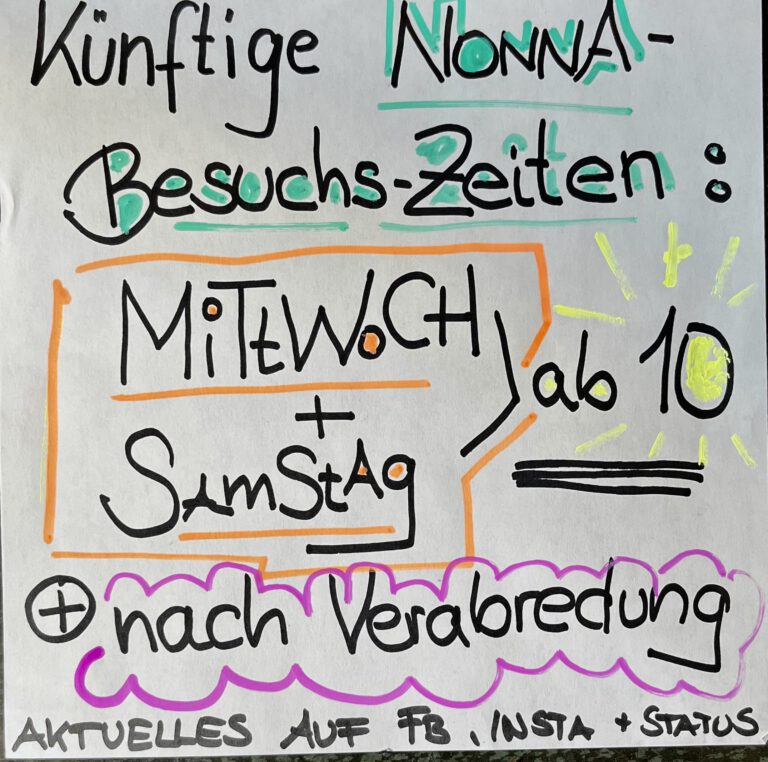 Künftige NONNA-
Besuchs-Zeiten:
MiTtWoCH
+
SAmStAg
ab 10
⊕ nach Verabredung
AKTUELLES AUF FB, INSTA + STATUS